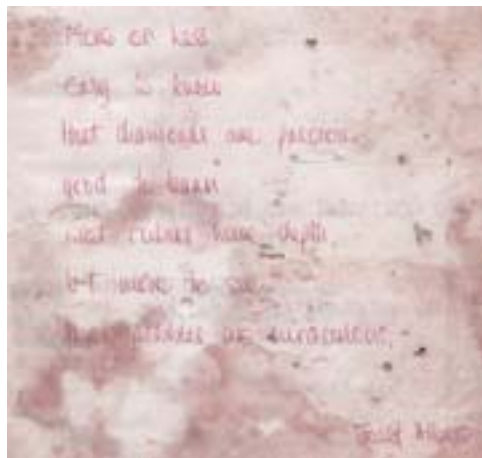 More or less
easy to know
that diamonds are precious.
good to learn
that rubies have depth
but more to see
that pebbles are miraculous.